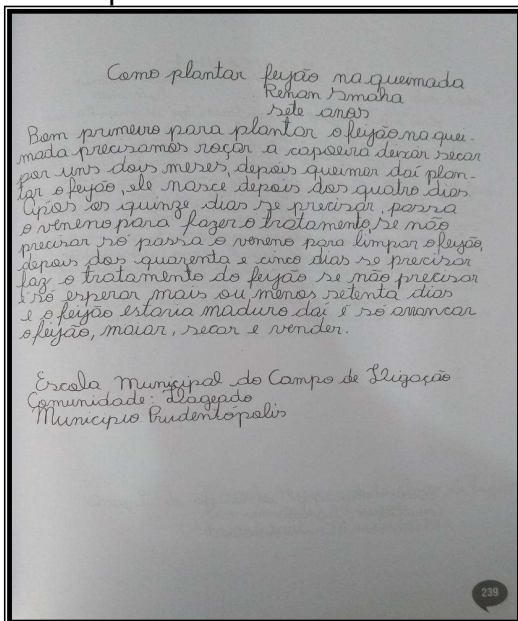 Como plantar feijão na queimada
Renan Smaha
sete anos
Bom primeiro para plantar o feijão na quei-
mada precisamos roçar a capoeira deixar secar
por uns dois meses, depois queimar daí plan-
tar o feijão, ele nasce depois dos quatro dias.
Após os quinze, dias se precisar, passa
o veneno para fazer o tratamento, se não
precisar só passa o veneno para limpar o feijão,
depois dos quarenta e cinco dias se precisar
faz o tratamento do feijão se não precisar
é só esperar mais ou menos setenta dias
e o feijão estaria maduro daí é só arrancar
o feijão, maiar, secar e vender.
Escola Municipal do Campo de Ligação
Comunidade: Lageado
Município Prudentópolis
239